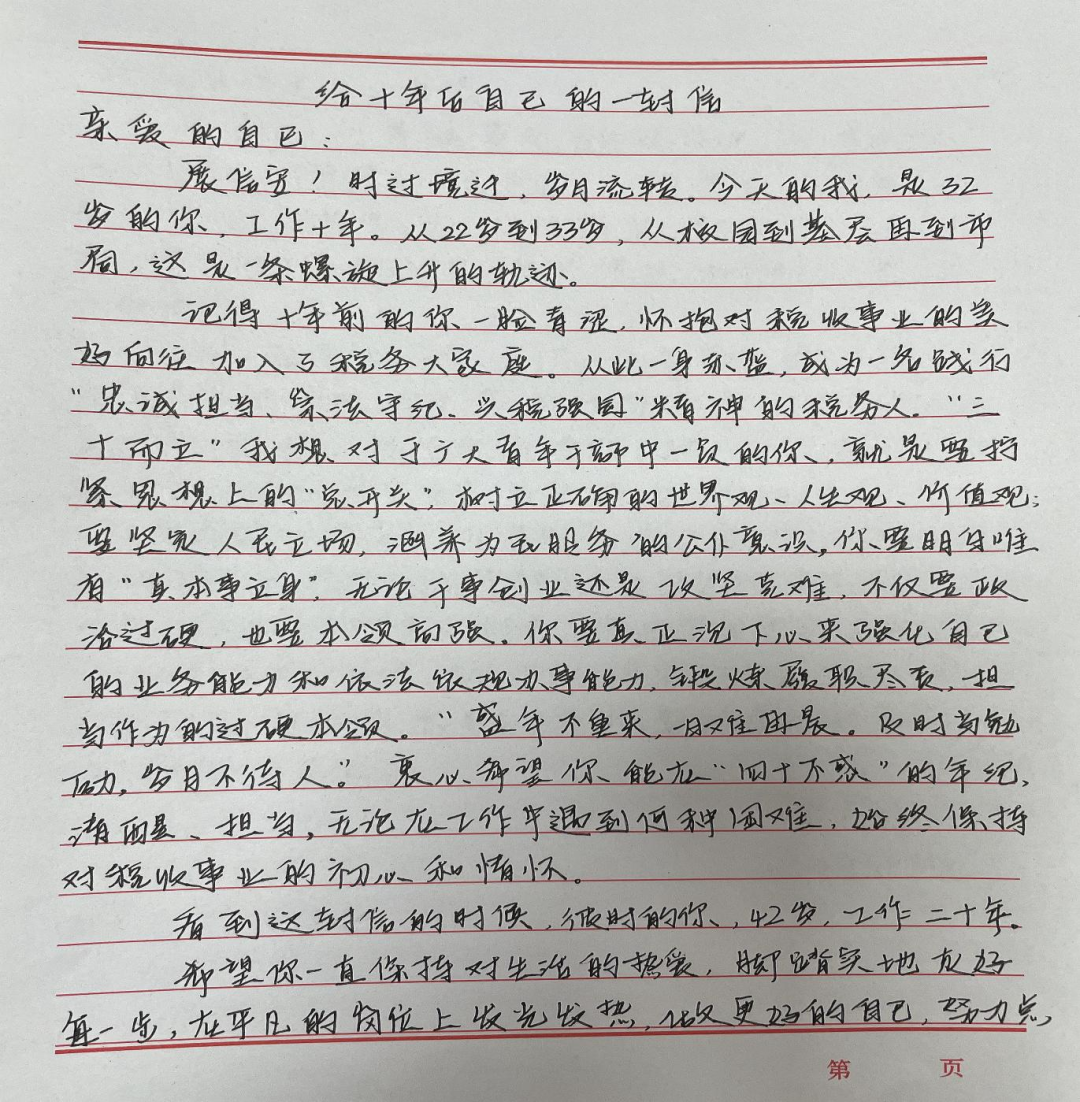 给十年后自己的一封信
亲爱的自己：
展信安！时过境迁，岁月流转。今天的我，是32
岁的你，工作十年。从22岁到33岁，从校园到基层再到市
局，这是一条螺旋上升的轨迹。
记得十年前的你一脸青涩，怀抱对税收事业的美
好向往加入了税务大家庭。从此一身赤蓝，成为一名践行
"忠诚担当、崇法守纪、兴税强国"精神的税务人。"三
十而立"我想对于广大青年干部中一员的你，就是要拧
紧思想上的"总开关"，树立正确的世界观、人生观、价值观；
要坚定人民立场，涵养为民服务的公仆意识。你要明白唯
有"真本事立身"，无论干事创业还是攻坚克难，不仅要政
治过硬，也要本领高强。你要真正沉下心来强化自己
的业务能力和依法依规办事能力，锻炼履职尽责，担
当作为的过硬本领。"盛年不重来，一日难再晨。及时当勉
励，岁月不待人。"衷心希望你能在"四十不惑"的年纪，
清醒、担当，无论在工作中遇到何种困难，始终保持
对税收事业的初心和情怀。
看到这封信的时候，彼时的你，42岁，工作二十年。
希望你一直保持对生活的热爱，脚踏实地走好
每一步，在平凡的岗位上发光发热，做更好的自己，努力点，
第 页